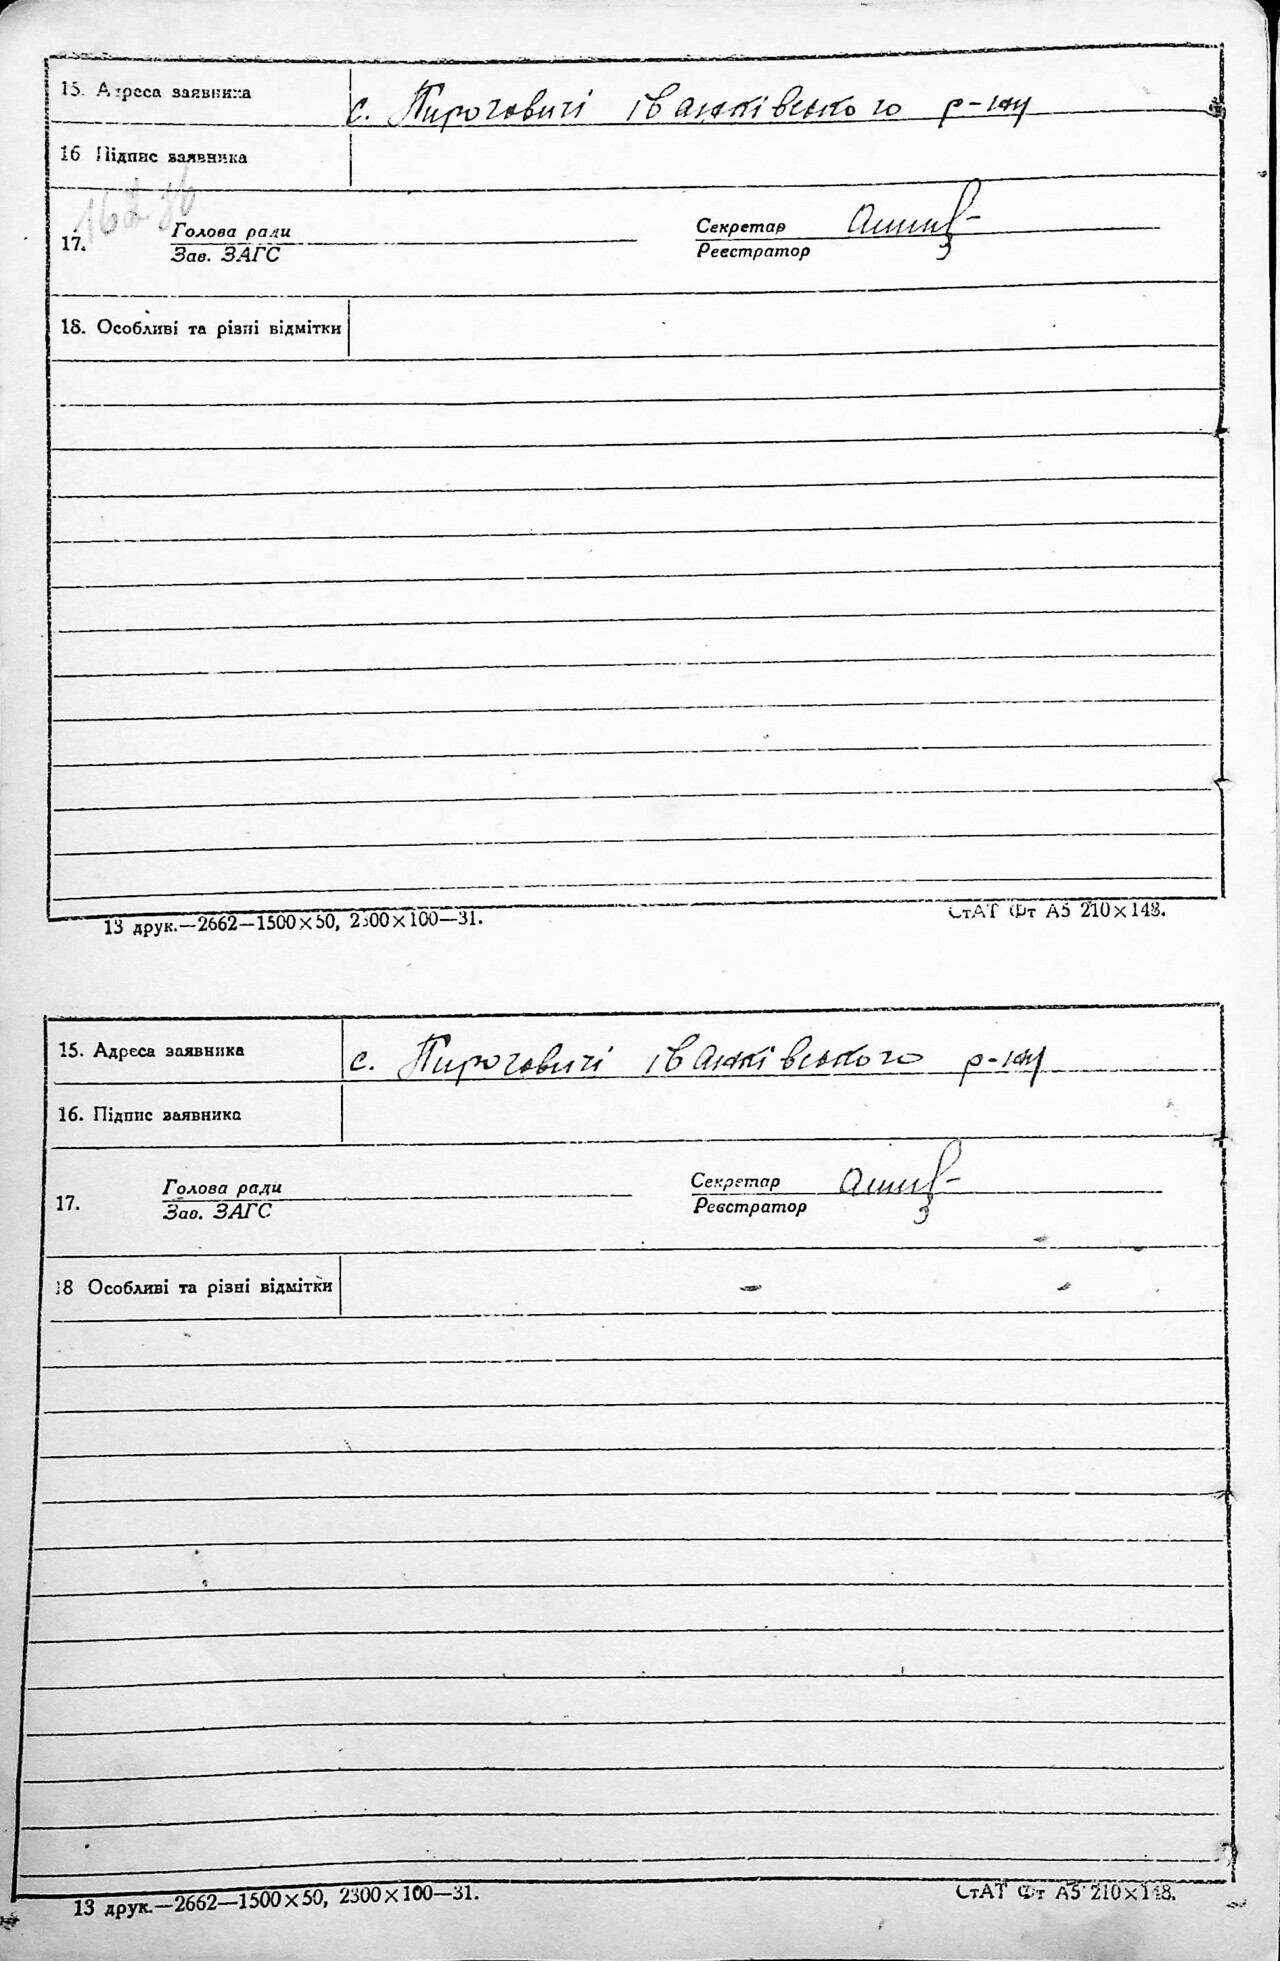 15. Адреса заявника с. Пироговичі іванківського р-ну
16 Підпис заявника
17. Голова ради Секретар
Зав. ЗАГС Реєстратор
18. Особливі та різні відмітки
13 друк.—2662—1500×50, 2300×100—31. СтАТ Фт А5 210×148.
15. Адреса заявника с. Пироговичі іванківського р-ну
16. Підпис заявника
17. Голова ради Секретар
Зав. ЗАГС Реєстратор
18 Особливі та різні відмітки
13 друк.—2662—1500×50, 2300×100—31. СтАТ Фт А5 210×148.